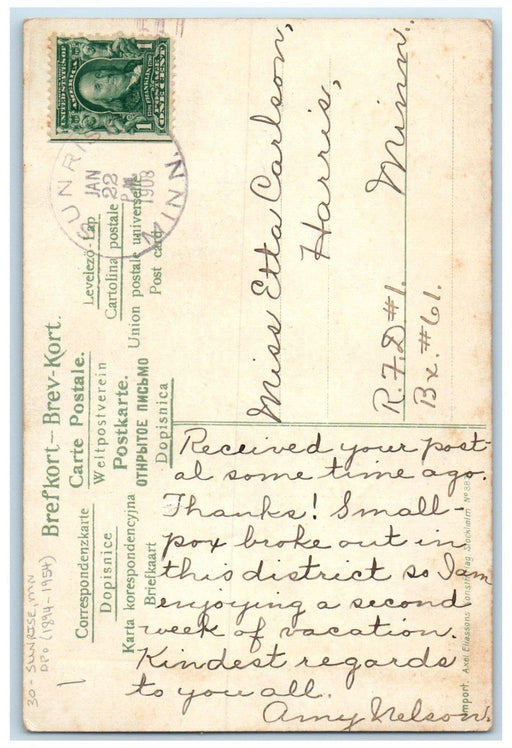 Brefkort – Brev-Kort.
Carte Postale.
Weltpostverein
Postkarte.
ОТКРЫТОЕ ПИСЬМО
Dopisnica
Correspondenzkarte
Dopisnice
Karta korespondencyjna
Briefkaart
Levelező-Lap
Cartolina postale
Union postale universelle
Post card
SUNRISE
MINN.
JAN
22
PM
1908
UNITED STATES OF AMERICA
FRANKLIN
POSTAGE
ONE CENT
1 1
Miss Etta Carlson,
Harris,
Minn.
R.F.D #1.
Bx. #61.
Received your post-
al some time ago.
Thanks! Small-
pox broke out in
this district so I am
enjoying a second
week of vacation.
Kindest regards
to you all.
Amy Nelson.
Import. Axel Eliassons Konstförlag Stockholm
30 - SUNRISE, MN
DPO (1894-1954)